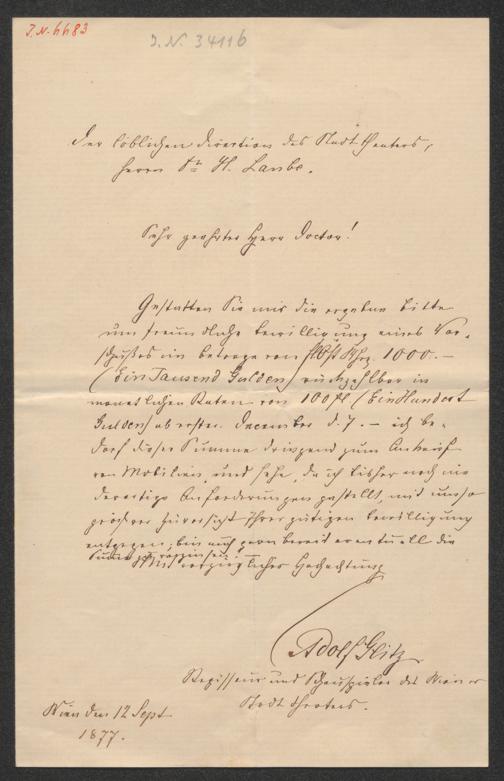 J.N. 6683
J.N. 34116
Der löblichen Direction des Stadttheaters,
Herrn Dr H. Laube.
Sehr geehrter Herr Doctor!
Gestatten Sie mir die ergebene Bitte
um freundliche Bewilligung eines Vor-
schußes im Betrage von 1000.–
(Ein Tausend Gulden) rückzahlbar in
monatlichen Raten von 100 fl (Ein Hundert
Gulden) ab ersten December d. J. – ich be-
darf dieser Summe dringend zum Ankauf
von Mobilien, und sehe, da ich bisher noch nie
derartige Anforderungen gestellt, mit umso
größerer Zuversicht Ihrer gütigen Bewilligung
entgegen; bin auch gern bereit eventuell die
Summe zu verzinsen! –
Mit vorzüglicher Hochachtung
Adolf Glitz
Regisseur und Schauspieler des Wiener
Stadttheaters.
Wien den 12 Sept
1877.